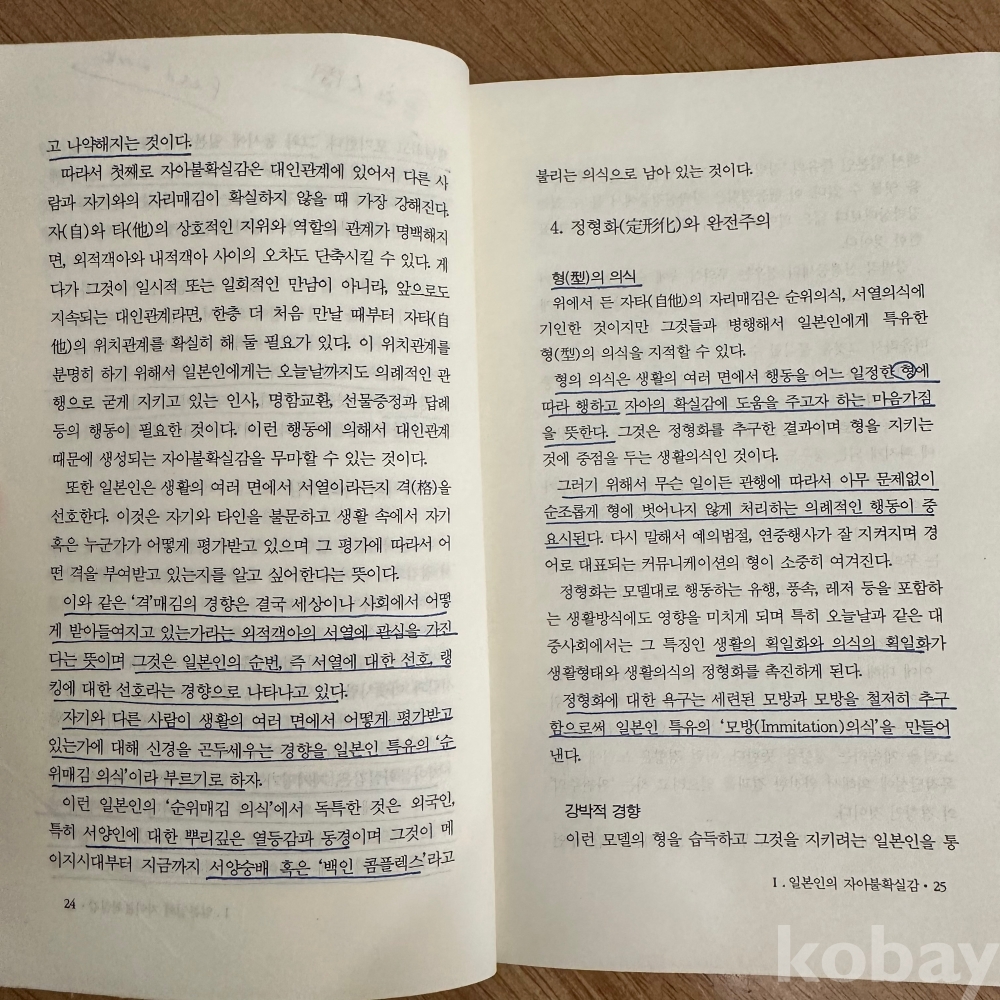 고 나약해지는 것이다.
따라서 첫째로 자아불확실감은 대인관계에 있어서 다른 사
람과 자기와의 자리매김이 확실하지 않을 때 가장 강해진다.
자(自)와 타(他)의 상호적인 지위와 역할의 관계가 명백해지
면, 외적객아와 내적객아 사이의 오차도 단축시킬 수 있다. 게
다가 그것이 일시적 또는 일회적인 만남이 아니라, 앞으로도
지속되는 대인관계라면, 한층 더 처음 만날 때부터 자타(自
他)의 위치관계를 확실히 해 둘 필요가 있다. 이 위치관계를
분명히 하기 위해서 일본인에게는 오늘날까지도 의례적인 관
행으로 굳게 지키고 있는 인사, 명함교환, 선물증정과 답례
등의 행동이 필요한 것이다. 이런 행동에 의해서 대인관계
때문에 생성되는 자아불확실감을 무마할 수 있는 것이다.
또한 일본인은 생활의 여러 면에서 서열이라든지 격(格)을
선호한다. 이것은 자기와 타인을 불문하고 생활 속에서 자기
혹은 누군가가 어떻게 평가받고 있으며 그 평가에 따라서 어
떤 격을 부여받고 있는지를 알고 싶어한다는 뜻이다.
이와 같은 '격'매김의 경향은 결국 세상이나 사회에서 어떻
게 받아들여지고 있는가라는 외적객아의 서열에 관심을 가진
다는 뜻이며 그것은 일본인의 순번, 즉 서열에 대한 선호, 랭
킹에 대한 선호라는 경향으로 나타나고 있다.
자기와 다른 사람이 생활의 여러 면에서 어떻게 평가받고
있는가에 대해 신경을 곤두세우는 경향을 일본인 특유의 '순
위매김 의식'이라 부르기로 하자.
이런 일본인의 '순위매김 의식'에서 독특한 것은 외국인,
특히 서양인에 대한 뿌리깊은 열등감과 동경이며 그것이 메
이지시대부터 지금까지 서양숭배 혹은 '백인 콤플렉스'라고
24
불리는 의식으로 남아 있는 것이다.
4. 정형화(定形化)와 완전주의
형(型)의 의식
위에서 든 자타(自他)의 자리매김은 순위의식, 서열의식에
기인한 것이지만 그것들과 병행해서 일본인에게 특유한
형(型)의 의식을 지적할 수 있다.
형의 의식은 생활의 여러 면에서 행동을 어느 일정한 형에
따라 행하고 자아의 확실감에 도움을 주고자 하는 마음가짐
을 뜻한다. 그것은 정형화를 추구한 결과이며 형을 지키는
것에 중점을 두는 생활의식인 것이다.
그러기 위해서 무슨 일이든 관행에 따라서 아무 문제없이
순조롭게 형에 벗어나지 않게 처리하는 의례적인 행동이 중
요시된다. 다시 말해서 예의범절, 연중행사가 잘 지켜지며 경
어로 대표되는 커뮤니케이션의 형이 소중히 여겨진다.
정형화는 모델대로 행동하는 유행, 풍속, 레저 등을 포함하
는 생활방식에도 영향을 미치게 되며 특히 오늘날과 같은 대
중사회에서는 그 특징인 생활의 획일화와 의식의 획일화가
생활형태와 생활의식의 정형화를 촉진하게 된다.
정형화에 대한 욕구는 세련된 모방과 모방을 철저히 추구
함으로써 일본인 특유의 '모방(Immitation)의식'을 만들어
낸다.
강박적 경향
이런 모델의 형을 습득하고 그것을 지키려는 일본인을 통
I . 일본인의 자아불확실감 · 25
kobay